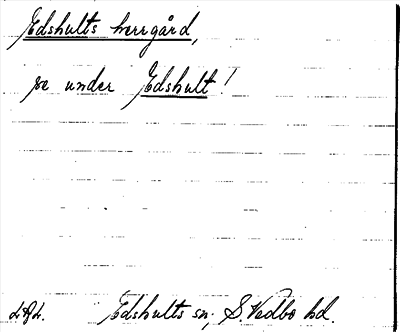 Edshults herrgård,
se under Edshult!
Edshults sn, S. Vedbo hd.